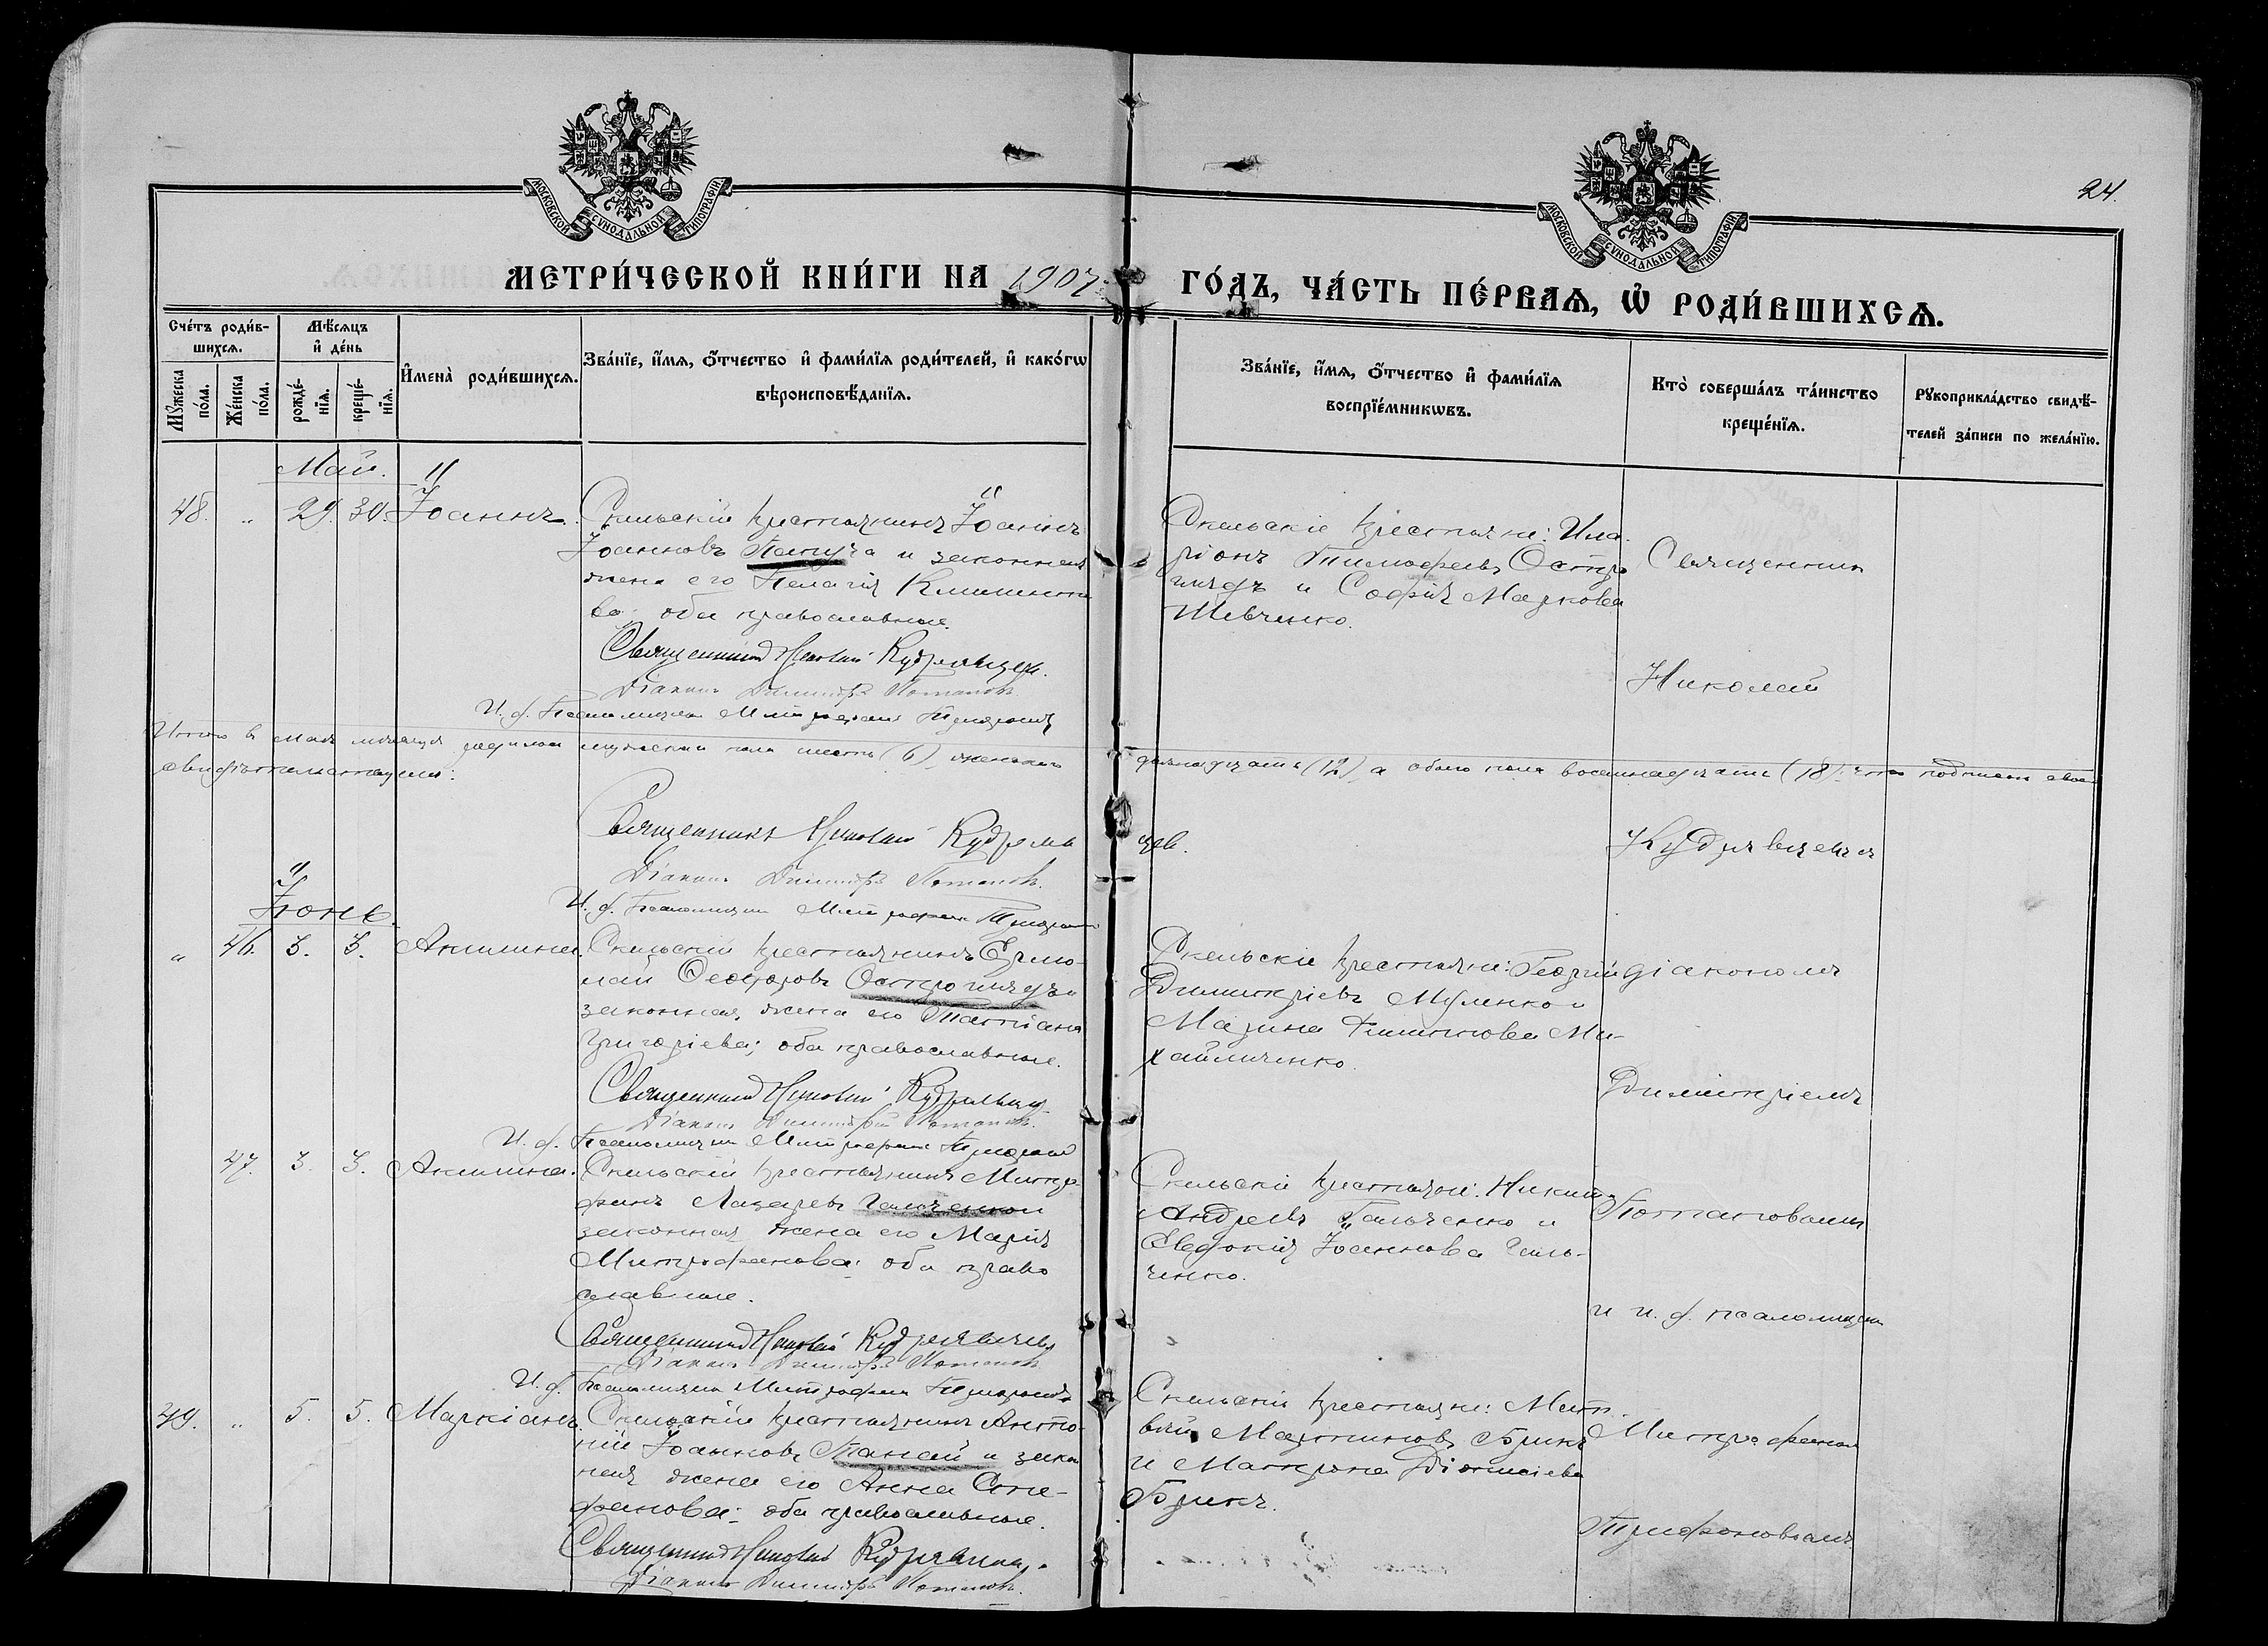 МОСКОВСКОЙ СѴНОДАЛЬНОЙ ТИПОГРАФІИ
МОСКОВСКОЙ СѴНОДАЛЬНОЙ ТИПОГРАФІИ
24.
МЕТРИ́ЧЕСКОЙ КНИ́ГИ НА 1907
ГО́ДЪ, ЧА́СТЬ ПЕ́РВАѦ, Ѡ҆ РОДИ́ВШИХСѦ.
Сче́тъ роди́в-
шихсѧ.
Мѣ́сѧцъ
и҆ де́нь
Мꙋ́жеска
по́ла.
Же́нска
по́ла.
рожде́-
нїѧ.
креще́-
нїѧ.
И҆мена̀ роди́вшихсѧ.
Зва́нїе, и҆́мѧ, ѻ҆́тчество и҆ фами́лїѧ роди́телей, и҆ како́гѡ
вѣроисповѣ́данїѧ.
Зва́нїе, и҆́мѧ, ѻ҆́тчество и҆ фами́лїѧ
воспрїе́мникѡвъ.
Кто̀ соверша́лъ та́инство
креще́нїѧ.
Рꙋкоприкла́дство свидѣ́-
телей за́писи по жела́нїю.
Май.
48. „ 29. 30. Іоаннъ.
Скельскій крестьянинъ Іоаннъ
Іоанновъ и законная
жена его Пелагія Клименто
ва; оба православные.
Священникъ Николай Кудрявцев.
Діаконъ Димитрій Потаповъ.
И. д. Псаломщика Митрофанъ
Скельскіе крестьяне: Ила-
ріонъ Тимофеевъ Остро
гнядъ и Софія Маркова
Шевченко.
Священник
Николай
Итого в мае месяце родилось мужского пола шесть (6), женского
двенадцать (12), а обоего пола восемнадцать (18): что подписом свои
свидѣтельствуемъ:
Священникъ Николай Кудрявцев.
Діаконъ Димитрій Потаповъ.
И. д. Псаломщика Митрофанъ
Кудрявцевъ
Іюнь.
„ 46. 3. 3. Акилина.
Скельскій крестьянинъ Ермо-
лай Ѳеодоровъ Острогнядъ и
законная жена его Татіана
Григоріева; оба православные.
Священникъ Николай Кудрявцев
Діаконъ Димитрій Потаповъ.
И. д. Псаломщика Митрофанъ
Скельскіе крестьяне: Георгій
Димитріевъ Муленко и
Марина Филиппова Ми-
хайличенко.
діакономъ
Димитріемъ
47. 3. 3. Акилина.
Скельскій крестьянинъ Митро
фанъ Лазаревъ Гальченко и
законная жена его Марія
Митрофанова; оба право
славные.
Священникъ Николай Кудрявцевъ
Діаконъ Димитрій Потаповъ
И. д. Псаломщика Митрофанъ
Скельскіе крестьяне: Никита
Андреевъ Гальченко и
Евдокія Іоаннова Галь-
ченко.
Потаповымъ
и и. д. псаломщика
49. „ 5. 5. Маркіанъ.
Скельскій крестьянинъ Анто-
ній Іоанновъ Панай и закон
ная жена его Анна Сте-
фанова; оба православные.
Священникъ Николай Кудрявцев.
Діаконъ Димитрій Потаповъ.
Скельскіе крестьяне: Мат-
вѣй Мартиновъ Брикъ
и Матрона Діонисіева
Брикъ.
Митрофаном
Трифоновымъ